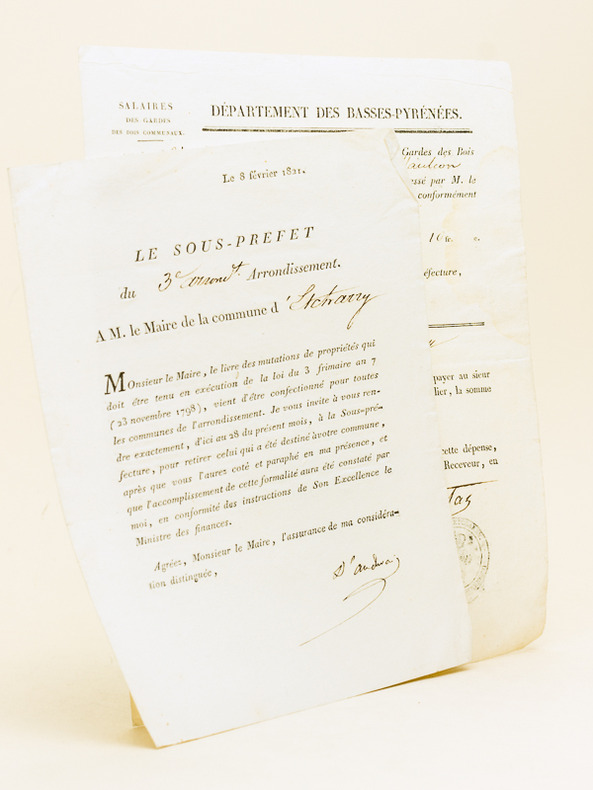 SALAIRES
DES GARDES
DES BOIS COMMUNAUX.
DÉPARTEMENT DES BASSES-PYRÉNÉES.
Gardes des Bois
essé par M. le
conformément
éfecture,
payer au sieur
lier, la somme
cette dépense,
Receveur, en
Le 8 février 1821.
LE SOUS-PREFET
du 3e Arrondissement.
A M. le Maire de la commune d' Etcharry
Monsieur le Maire, le livre des mutations de propriétés qui
doit être tenu en exécution de la loi du 3 frimaire an 7
(23 novembre 1798), vient d'être confectionné pour toutes
les communes de l'arrondissement. Je vous invite à vous ren-
dre exactement, d'ici au 28 du présent mois, à la Sous-pré-
fecture, pour retirer celui qui a été destiné à votre commune,
après que vous l'aurez coté et paraphé en ma présence, et
que l'accomplissement de cette formalité aura été constaté par
moi, en conformité des instructions de Son Excellence le
Ministre des finances.
Agréez, Monsieur le Maire, l'assurance de ma considéra-
tion distinguée,